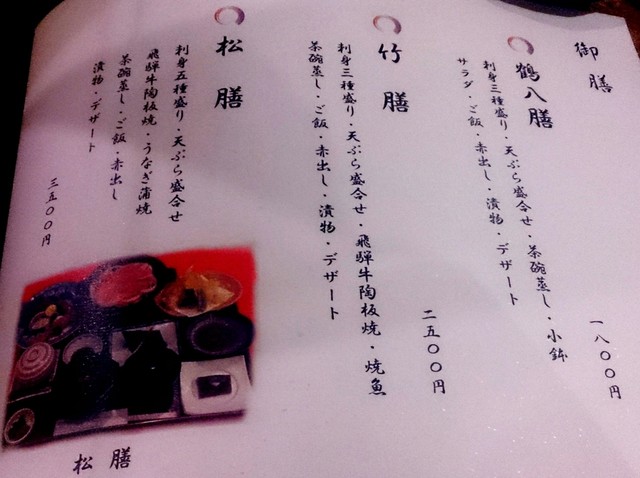 御膳
鶴八膳
刺身三種盛り・天ぷら盛合せ・茶碗蒸し・小鉢
サラダ・ご飯・赤出し・漬物・デザート
一八〇〇円
竹膳
刺身三種盛り・天ぷら盛合せ・飛騨牛陶板焼・焼魚
茶碗蒸し・ご飯・赤出し・漬物・デザート
二五〇〇円
松膳
刺身五種盛り・天ぷら盛合せ
飛騨牛陶板焼・うなぎ蒲焼
茶碗蒸し・ご飯・赤出し
漬物・デザート
三五〇〇円
松膳